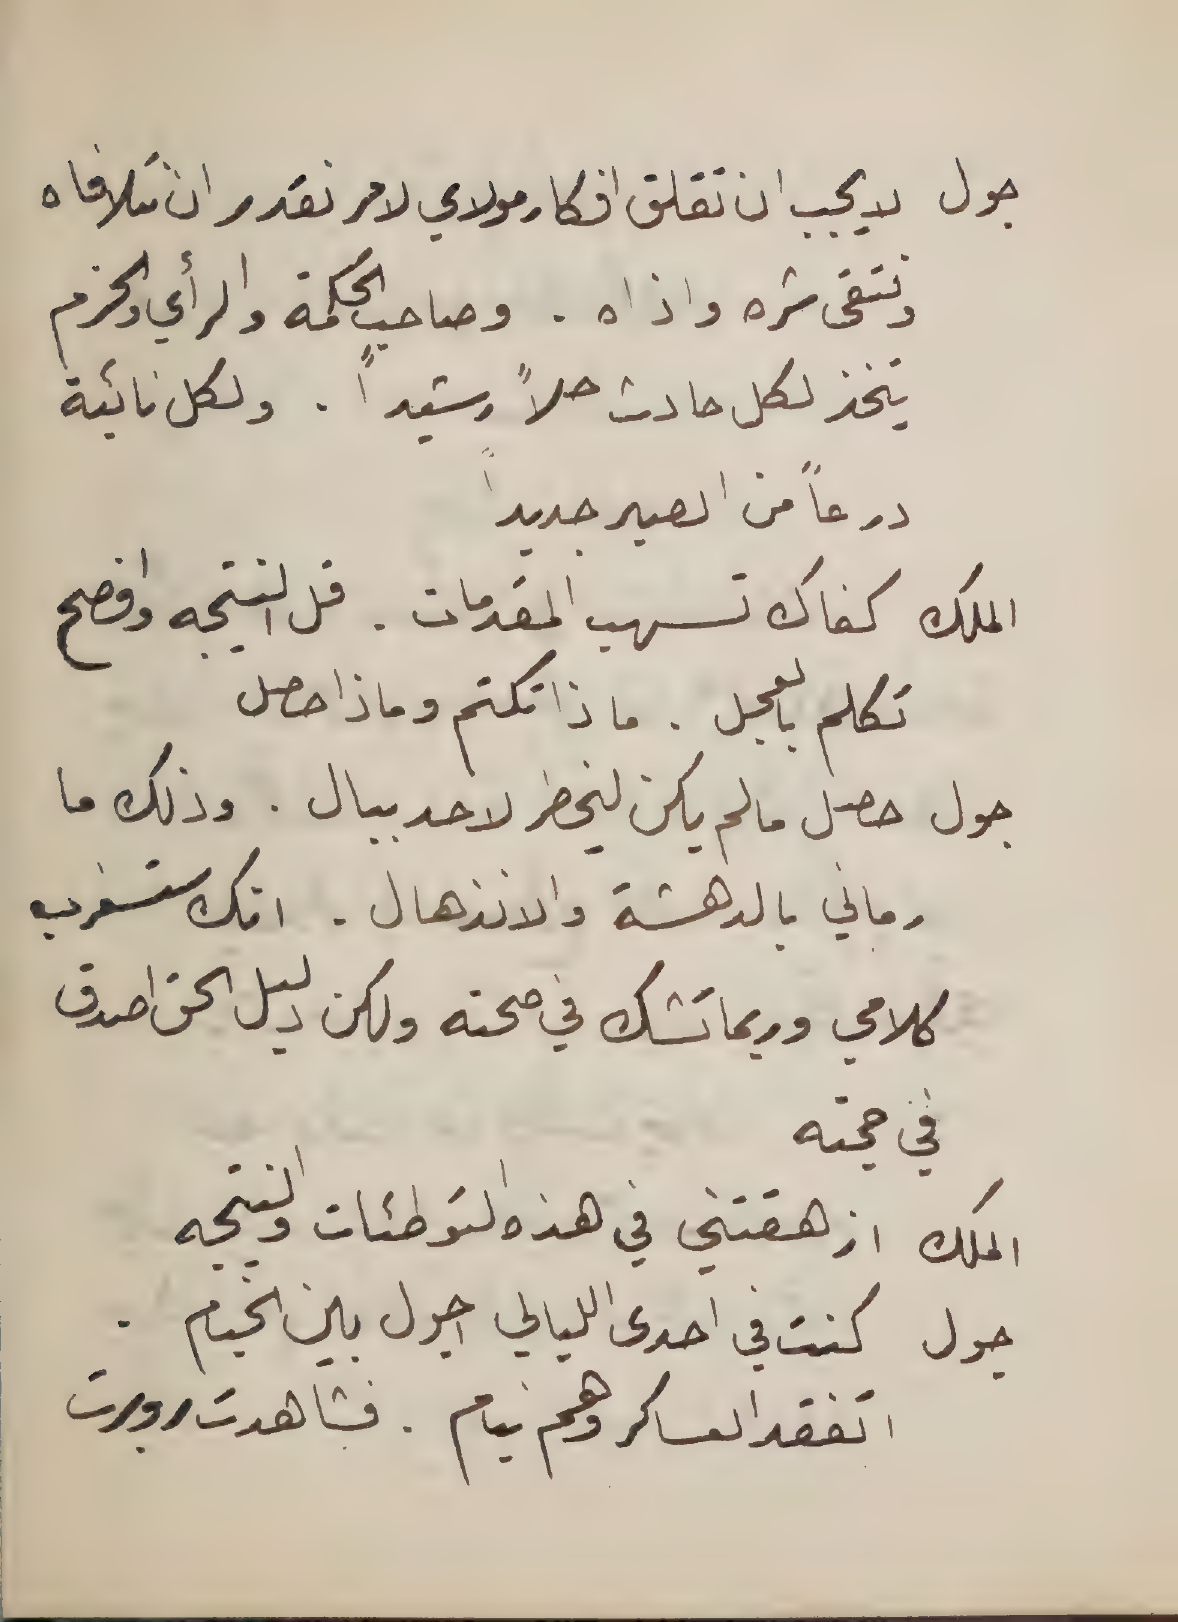 جول لا يجب ان تقلق افكار مولاي لامر نقدر ان نتلافاه
ونتقى شره واذاه . وصاحب الحكمة والرأي والحزم
يتخذ لكل حادث حلاً رشيداً . ولكل نائبة
درعاً من الصبر جديداً
الملك كفاك تسهب المقدمات . قل النتيجه وافصح
تكلم بالعجل . ماذا تكتم وماذا حصل
جول حصل مالم يكن ليخطر لاحد ببال . وذلك ما
رماني بالدهشة والانذهال . انك ستستغرب
كلامي وربما تشك في صحته ولكن دليل الحق اصدق
في حجته
الملك ازهقتني في هذه التوطئات والنتيجه
جول كنت في احدى الليالي اجول بين الخيام .
اتفقد العساكر وهم نيام . فشاهدت روبرت